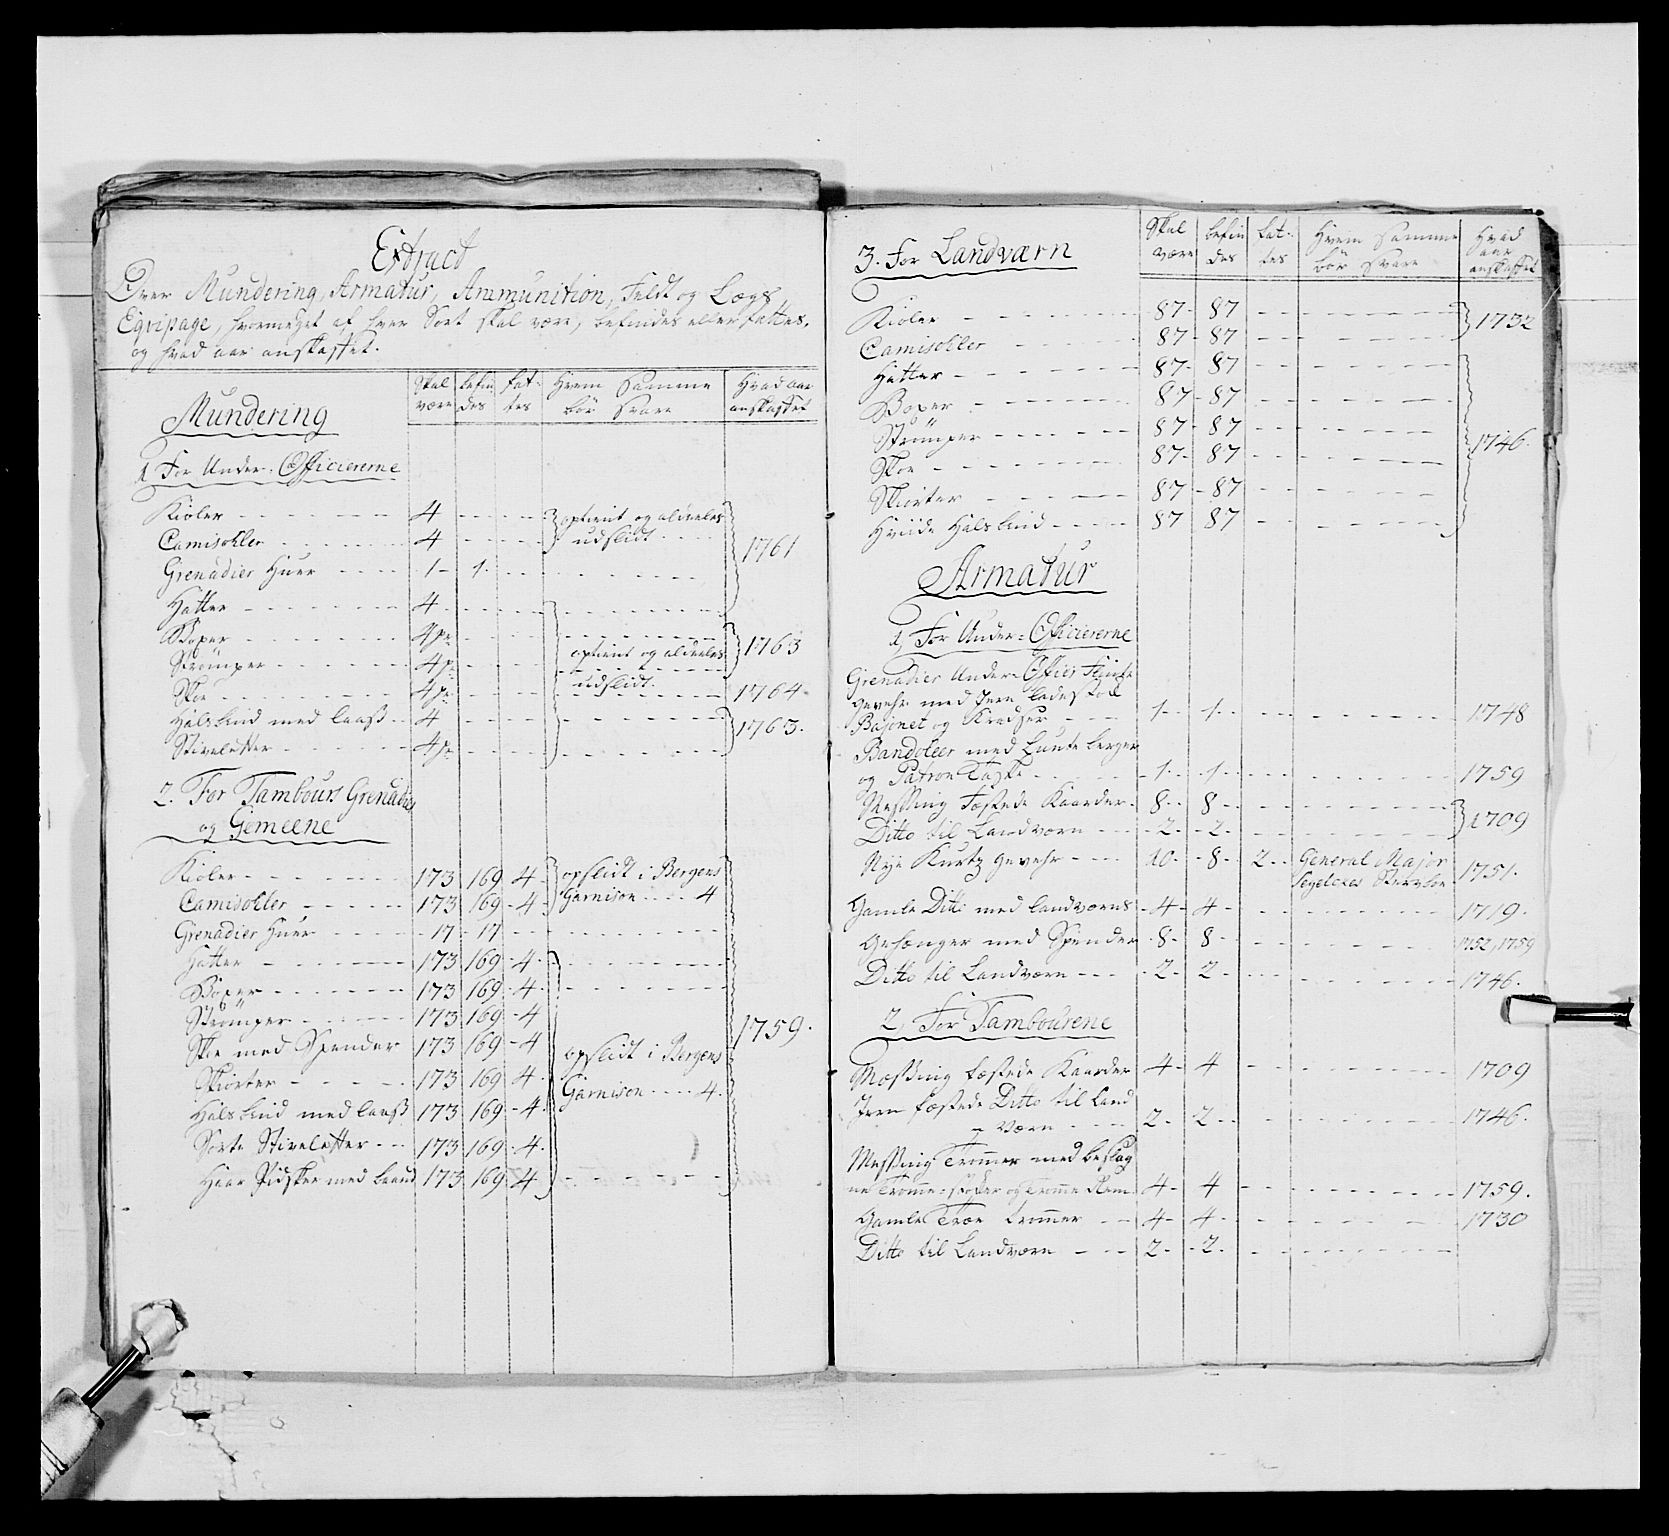 Extract
Over Mundering, Armatur, Ammunition, Feldt og Lægs
Eqvipage, hvormeget af hver Sort skal være, befindes eller fattes,
og hvad aar anskaffet.
Mundering
Skal være | befindes | fattes | Hvem Samme bør Svare | Hvad aar anskaffet
1. For Under-Officiererne
Kioler - - - 4 - - -
Camisohler - - - 4 - - - optient og aldeeles udslidt - - 1761
Grenadier Huer - - - 1 - 1 - - -
Hatter - - - 4 - - -
Boxer - - - 4 pr - - -
Strömper - - - 4 pr - - - optient og aldeeles udslidt. 1763
Skoe - - - 4 pr - - - 1764
Halsbind med laass - - 4 - - - 1763.
Stiveletter - - - 4 pr - - -
2. For Tambours Grenadier
og Gemeene
Kioler - - - 173 169 4 - opslidt i Bergens
Camisohler - - - 173 169 - 4 - Garnison - - - 4
Grenadier Huer - - - 17 - 17 - - -
Hatter - - - 173 169 - 4 -
Boxer - - - 173 169 - 4 -
Strömper - - - 173 169 - 4
Skoe med Spender 173 169 - 4 opslidt i Bergens 1759.
Skiorter - - - 173 169 4 Garnison - - - 4.
Halsbind med laass 173 169 - 4
Sorte Stiveletter - - 173 169 - 4
Haar Pidsker med baand 173 169 4
3. For Landværn
Skal være | befindes | fattes | Hvem Samme bør Svare | Hvad aar anskaffet
Kioler - - - 87 - 87 - - - 1732
Camisohler - - - 87 - 87 - - -
Hatter - - - 87 - 87 - - -
Boxer - - - 87 - 87 - - -
Strömper - - - 87 - 87 - - - 1746.
Skoe - - - 87 - 87 - - -
Skiorter - - - 87 - 87 - - -
Hviide Halsbind - - - 87 87 - - -
Armatur
1, For Under-Officiererne
Grenadier Under-Officer Flinte
gevehr med Jern ladestok
Bajonet og Kradser - - - 1 - 1 - - - 1748
Bandoleer med Lunte berger
og Patron Taske - - - 1 - 1 - - - 1759
Messing fæstede Kaarder - 8 - 8 - - - 1709
Ditto til Landværn - - - 2 - 2 - - -
Nye Kurtz gevehr - - - 10 - 8 - 2 - General Major
1751.
Gamle Ditto med landværns - 4 - 4 - - - 1719.
Gehænger med Spender - 8 - 8 - - - 1752, 1759
Ditto til Landværn - - - 2 - 2 - - - 1746.
2, For Tambourene
Messing fæstede Kaarder 4 - 4 - - - 1709
Jern fæstede Ditto til Land
Værn - - - 2 - 2 - - - 1746.
Messing Trommer med beslag
ne Tromme-stokker og Tromme Rem. 4 - 4 - - - 1759.
Gamle Træe trommer - - 4 - 4 - - - 1730
Ditto til Landværn - - - 2 - 2 - - -